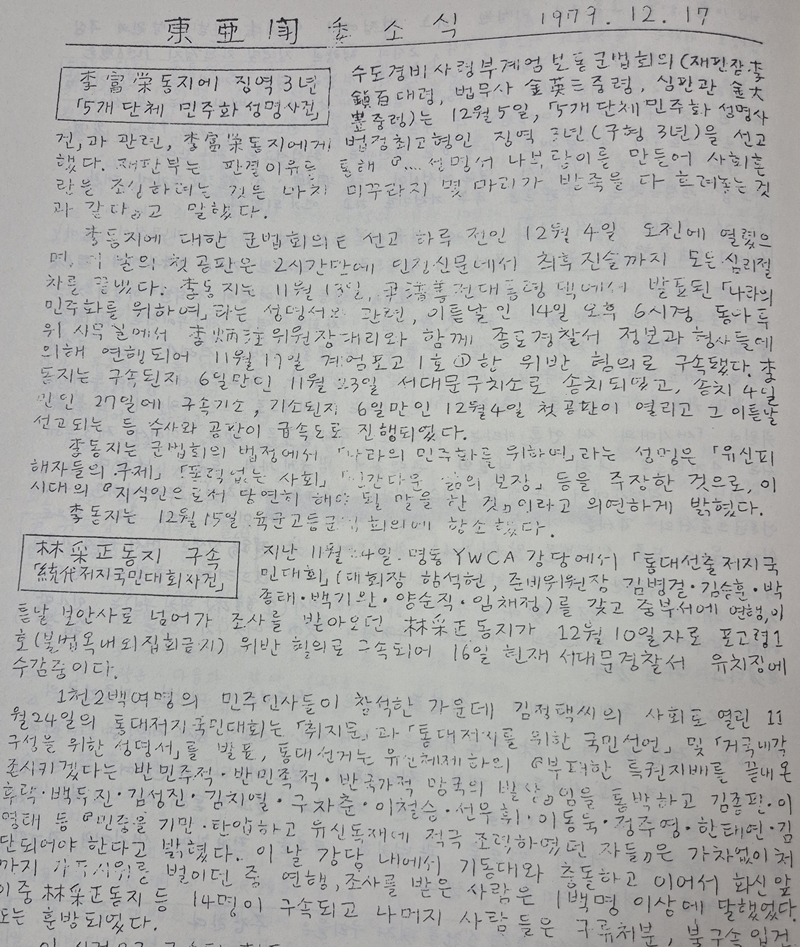 東亞鬪委소식 1979. 12. 17
李富榮동지에 징역 3년
「5개 단체 민주화 성명사건」
수도경비사령부계엄보통군법회의(재판장 李
鎭百대령, 법무사 金英三중령, 심판관 金大
豊중령)는 12月5일, 「5개단체민주화 성명사
건」과 관련, 李富榮동지에게 법정최고형인 징역 3년(구형 3년)을 선고
했다. 재판부는 판결이유를 통해 『....성명서 나부랑이를 만들어 사회혼
란을 조성하려는 것은 마치 미꾸라지 몇 마리가 반죽을 다 흐려놓는 것
과 같다』고 말했다.
李동지에 대한 군법회의는 선고 하루 전인 12월 4일 오전에 열렸으
며, 이 날의 첫 공판은 2시간만에 인정신문에서 최후진술까지 모든 심리절
차를 끝냈다. 李동지는 11월 13일, 尹潽善전대통령 댁에서 발표된 「나라의
민주화를 위하여」라는 성명서와 관련, 이튿날인 14일 오후 6시경 동아투
위 사무실에서 李炳注위원장대리와 함께 종로경찰서 정보과 형사들에
의해 연행되어 11월 17일 계엄포고 1호 ①한 위반 혐의로 구속됐다. 李
동지는 구속된지 6일만인 11월 23일 서대문구치소로 송치되었고, 송치 4일
만인 27일에 구속기소, 기소된지 6일만인 12월4일 첫 공판이 열리고 그 이튿날
선고되는 등 수사와 공판이 급속도로 진행되었다.
李동지는 군법회의 법정에서 「나라의 민주화를 위하여」라는 성명은 「유신피
해자들의 구제」 「폭력없는 사회」 「인간다운 삶의 보장」 등을 주장한 것으로, 이
시대의 『지식인으로서 당연히 해야 될 말을 한 것』이라고 의연하게 밝혔다.
李동지는 12월15일 육군고등군법회의에 항소했다.
林采正동지 구속
「統代저지국민대회사건」
지난 11월 24일 명동 YWCA 강당에서 「통대선출저지국
민대회」(대회장 함석헌, 준비위원장 김병걸·김승훈·박
종태·백기완·양순직·임채정)를 갖고 중부서에 연행, 이
튿날 보안사로 넘어가 조사를 받아오던 林采正동지가 12월 10일자로 포고령1
호(불법옥내외집회금지) 위반 혐의로 구속되어 16일 현재 서대문경찰서 유치장에
수감중이다.
1천2백여명의 민주인사들이 참석한 가운데 김정택씨의 사회로 열린 11
월24일의 통대저지국민대회는 「취지문」과 「통대저지를 위한 국민선언」 및 「거국내각
구성을 위한 성명서」를 발표, 통대선거는 유신체제하의 『부패한 특권지배를 끝내 온
존시키겠다는 반민주적·반민족적·반국가적 망국의 발상』임을 통박하고 김종필·이
후락·백두진·김성진·김치열·구자춘·이철승·선우휘·이동욱·정주영·한태연·김
영태 등 『민중을 기만·탄압하고 유신독재에 적극 조력하였던 자들』은 가차없이 처
단되어야 한다고 밝혔다. 이 날 강당 내에서 기동대와 충돌하고 이어서 화신앞
까지 가두시위를 벌이던 중 연행, 조사를 받은 사람은 1백명 이상에 달했었다.
이중 林采正동지 등 14명이 구속되고 나머지 사람들은 구류처분, 불구속입건
또는 훈방되었다.